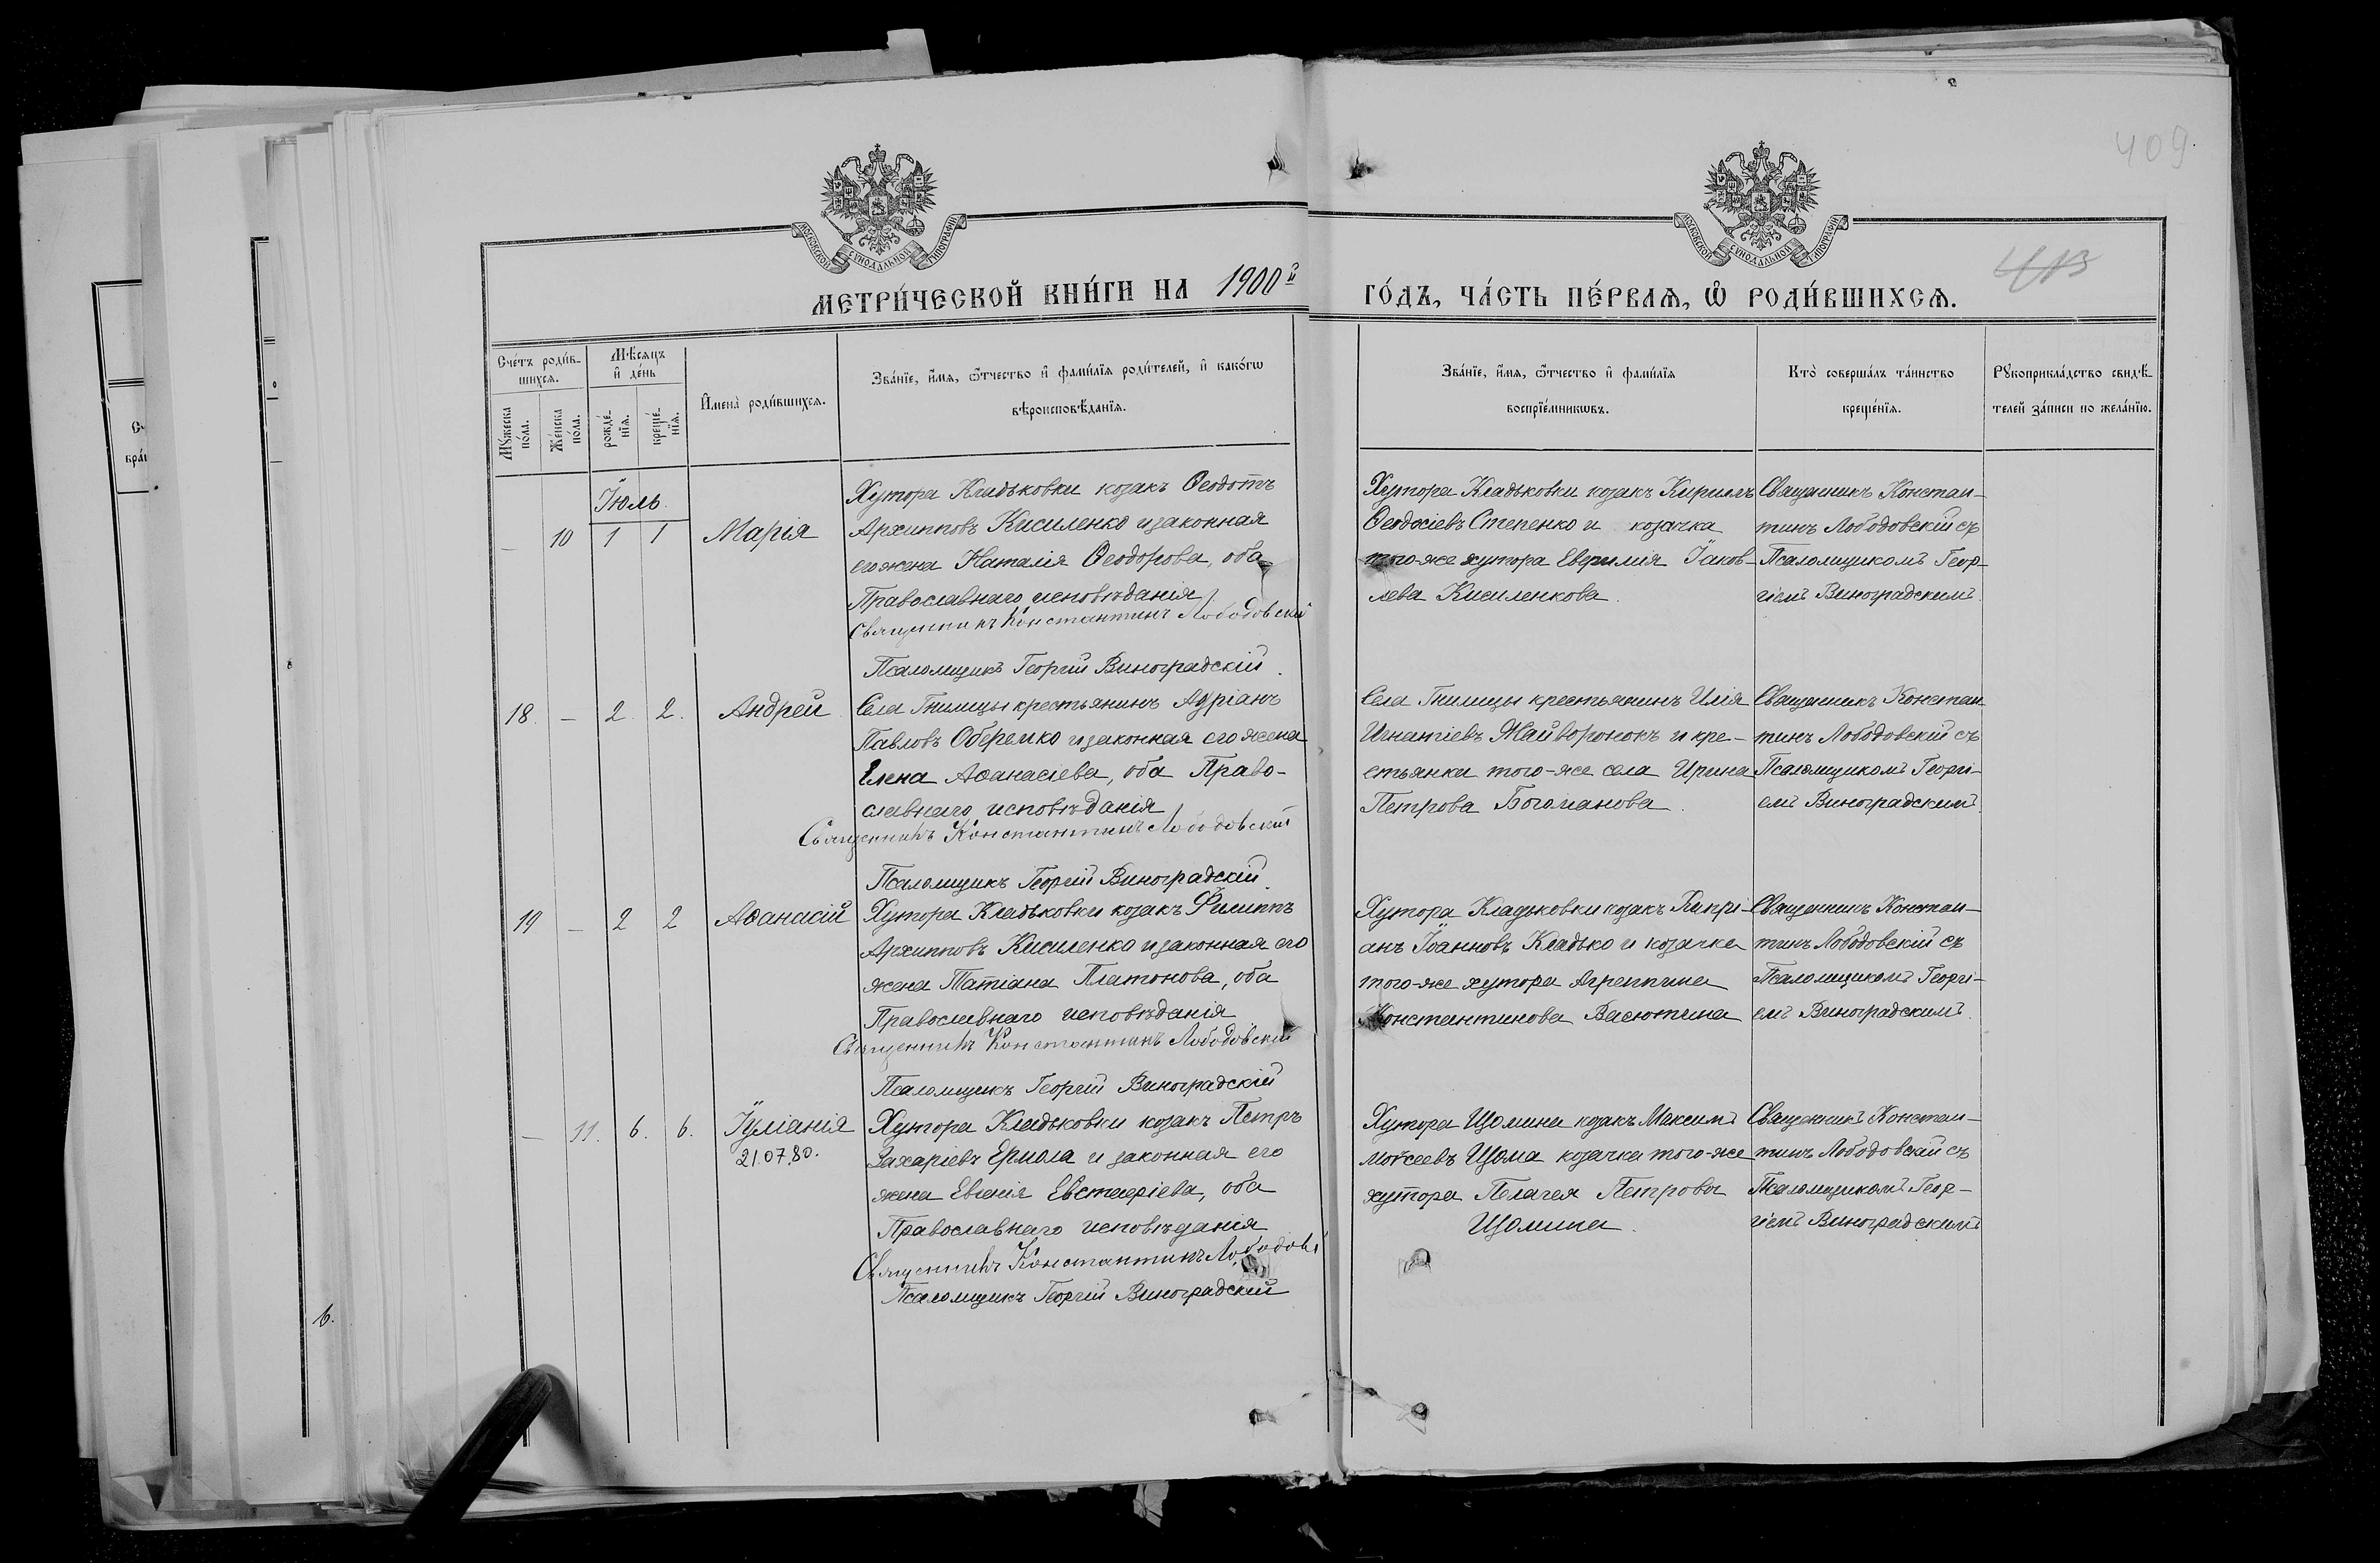 409.
МОСКОВСКОЙ СѴНОДАЛЬНОЙ ТИПОГРАФІИ
МОСКОВСКОЙ СѴНОДАЛЬНОЙ ТИПОГРАФІИ
МЕТРИ́ЧЕСКОЙ КНИ́ГИ НА 1900й ГО́ДЪ, ЧА́СТЬ ПЕ́РВАѦ, Ѡ РОДИ́ВШИХСѦ.
Сче́тъ роди́в-
шихсѧ.
Мѣ́сѧцъ
и҆ де́нь
Мꙋ́жеска
по́ла.
Же́нска
по́ла.
рожде́-
нїѧ.
креще́-
нїѧ.
И҆мена̀ роди́вшихсѧ.
Зва́нїе, и҆́мѧ, ѻ҆́тчество и҆ фами́лїѧ роди́телей, и҆ како́гѡ
вѣроисповѣ́данїѧ.
Зва́нїе, и҆́мѧ, ѻ҆́тчество и҆ фами́лїѧ
воспрїе́мникѡвъ.
Кто̀ соверша́лъ та́инство
креще́нїѧ.
Рꙋкоприкла́дство свидѣ́-
телей за́писи по жела́нїю.
Іюль.
— 10 1 1 Марія
Хутора Кладьковки козакъ Ѳеодотъ
Архипповъ Кисиленко и законная
его жена Наталія Ѳеодорова, оба
Православнаго исповѣданія
Священникъ Константинъ Лободовскій
Псаломщикъ Георгій Виноградскій.
Хутора Кладьковки козакъ Кириллъ
Ѳеодосіевъ Степенко и козачка
того-же хутора Евфимія Іаков-
лева Кисиленкова.
Священникъ Констан-
тинъ Лободовскій съ
Псаломщикомъ Геор-
гіемъ Виноградскимъ.
18. — 2. 2. Андрей
Села Гнилицы крестьянинъ Адріанъ
Павловъ Оберемко и законная его жена
Елена Аѳанасіева, оба Право-
славнаго исповѣданія
Священникъ Константинъ Лободовскій
Псаломщикъ Георгій Виноградскій.
Села Гнилицы крестьянинъ Илія
Игнатіевъ Жайворонокъ и кре-
стьянка того-же села Ирина
Петрова
Священникъ Констан
тинъ Лободовскій съ
Псаломщикомъ Георгі-
емъ Виноградскимъ.
19 — 2 2 Аѳанасій
Хутора Кладьковки козакъ Филиппъ
Архипповъ Кисиленко и законная его
жена Татіана Платонова, оба
Православнаго исповѣданія
Священникъ Константинъ Лободовскій
Псаломщикъ Георгій Виноградскій
Хутора Кладьковки козакъ Кипрі-
анъ Іоанновъ Кладько и козачка
того-же хутора Агриппина
Константинова Васютина
Священникъ Констан-
тинъ Лободовскій съ
Псаломщикомъ Георгі-
емъ Виноградскимъ.
— 11. 6. 6. Іуліанія
21.07.80.
Хутора Кладьковки козакъ Петръ
Захаріевъ Ермола и законная его
жена Евгенія Евстафіева, оба
Православнаго исповѣданія
Священникъ Константинъ
Псаломщикъ Георгій Виноградскій
Хутора Щомина козакъ Максимъ
Моѵсеевъ Щома козачка того-же
хутора Пелагея Петрова
Щомина.
Священникъ Констан-
тинъ Лободовскій съ
Псаломщикомъ Геор-
гіемъ Виноградскимъ
6.